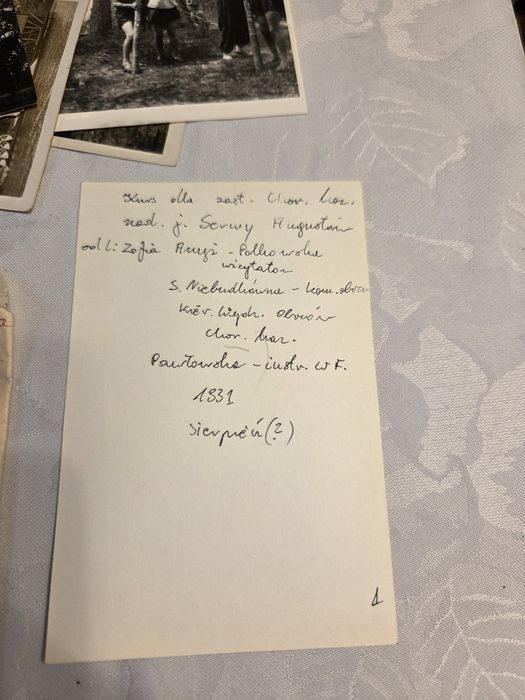 Kurs dla zast. Chor. haz.
nad. j. Serwy Augustów
od l: Zofia - Polkowska
wizytator
S. Niebudkówna - kom. obozu
Kier. Wych. obozów
Chor. haz.
Pawłowska - instr. W F.
1931
Sierpień (?)
1